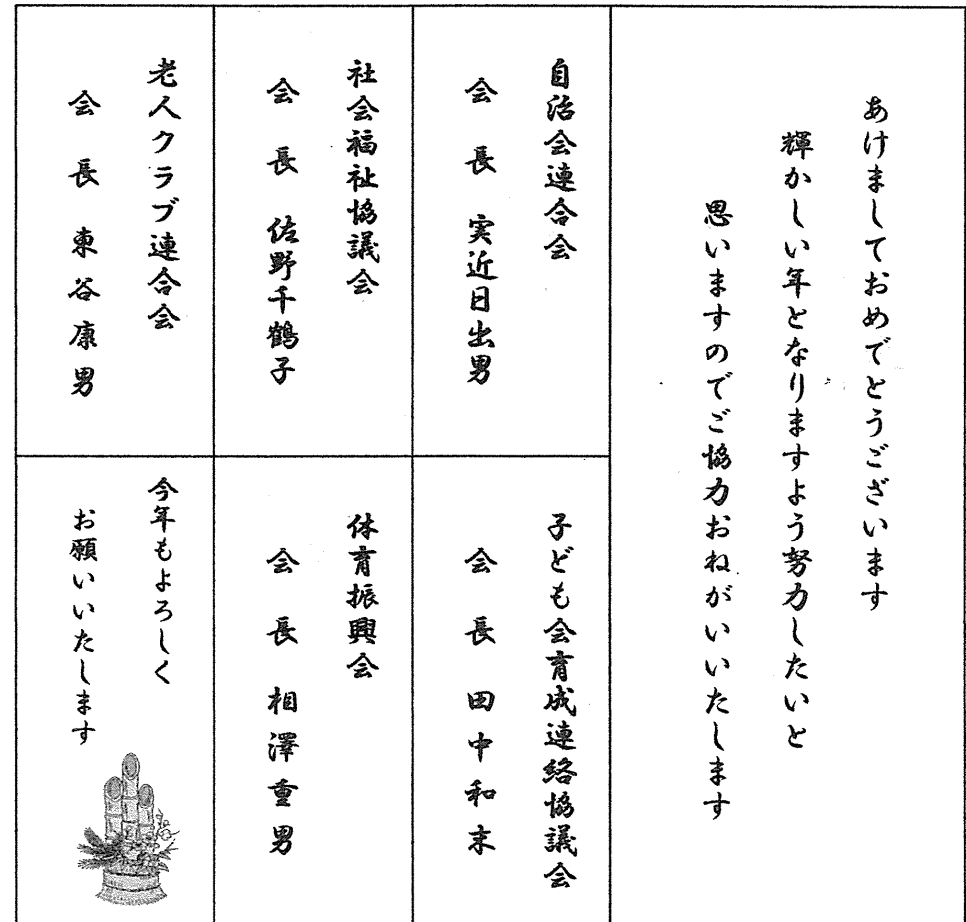 あけましておめでとうございます
輝かしい年となりますよう努力したいと
思いますのでご協力おねがいいたします
自治会連合会
会長 実近日出男
子ども会育成連絡協議会
会長 田中和末
社会福祉協議会
会長 佐野千鶴子
体育振興会
会長 相澤重男
老人クラブ連合会
会長 東谷康男
今年もよろしく
お願いいたします